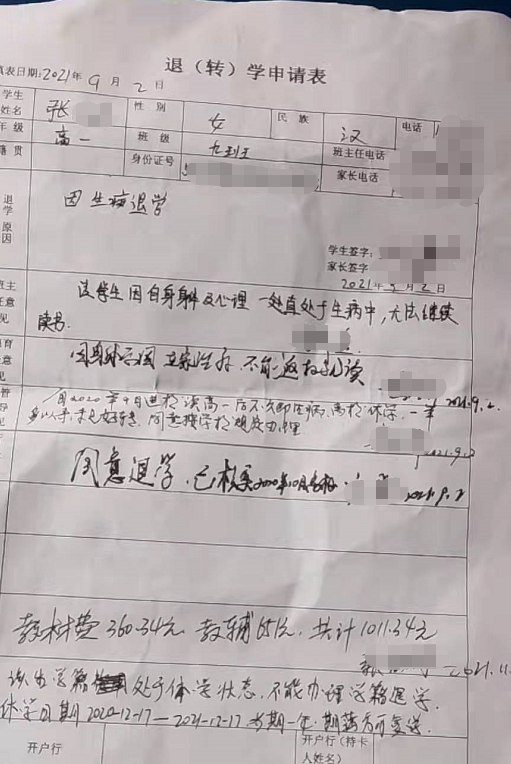 退（转）学申请表
填表日期:2021年9月2日
学生姓名 张 性别 女 民族 汉 电话
年级 高一 班级 九班 班主任电话
籍贯 身份证号 家长电话
退学原因 因生病退学
学生签字:
家长签字
2021年9月2日
该学生因自身身体及心理一直处于生病中,无法继续
读书.
因身体原因 不能返校就读
2021.9.2.
2020年9月进校读高一后不久即生病,离校休学,一年
多以来,未见好转,同意按学校规定办理
2021.9.2
同意退学.已核实2020年10月
2021.9.2
教材费360.34元.教辅651元.共计1011.34元
2021.11
该生学籍处于休学状态.不能办理学籍退学.
休学日期2020-12-17—2021-12-17.为期一年.期满方可复学.
开户行 开户行（持卡人姓名）